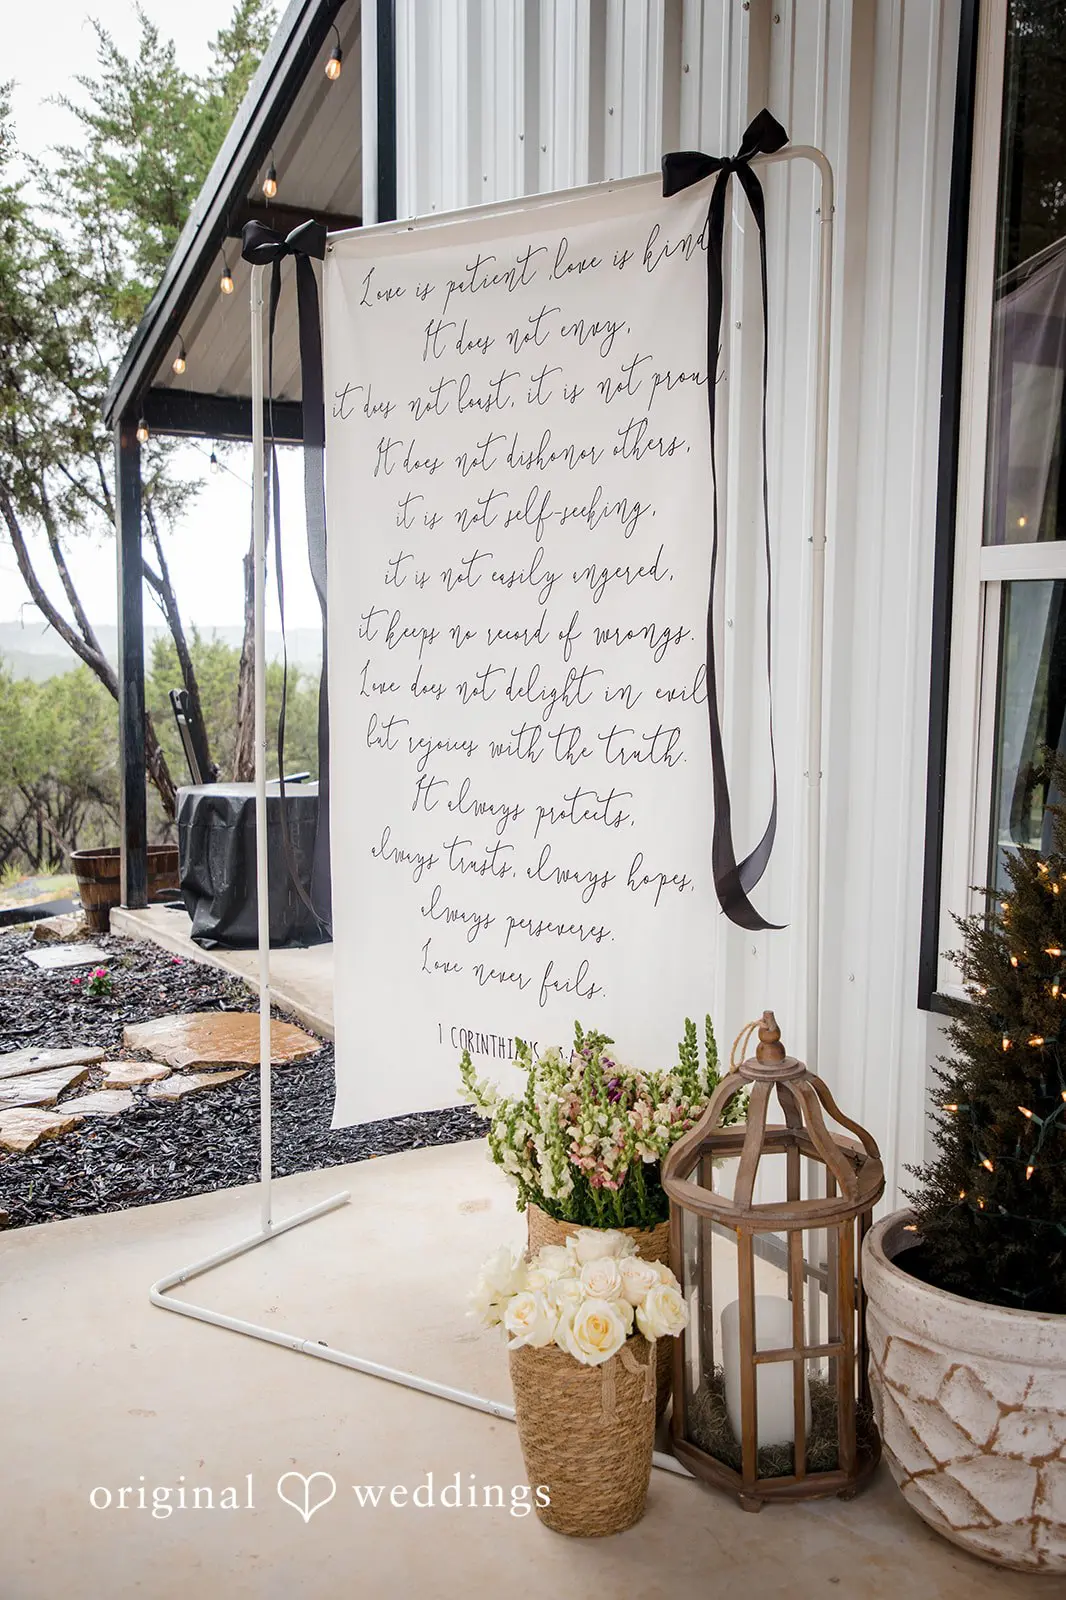 Love is patient, love is kind
It does not envy,
it does not boast, it is not proud.
It does not dishonor others,
it is not self-seeking,
it is not easily angered,
it keeps no record of wrongs.
Love does not delight in evil
but rejoices with the truth.
It always protects,
always trusts, always hopes,
always perseveres.
Love never fails.
1 CORINTHIANS
original weddings